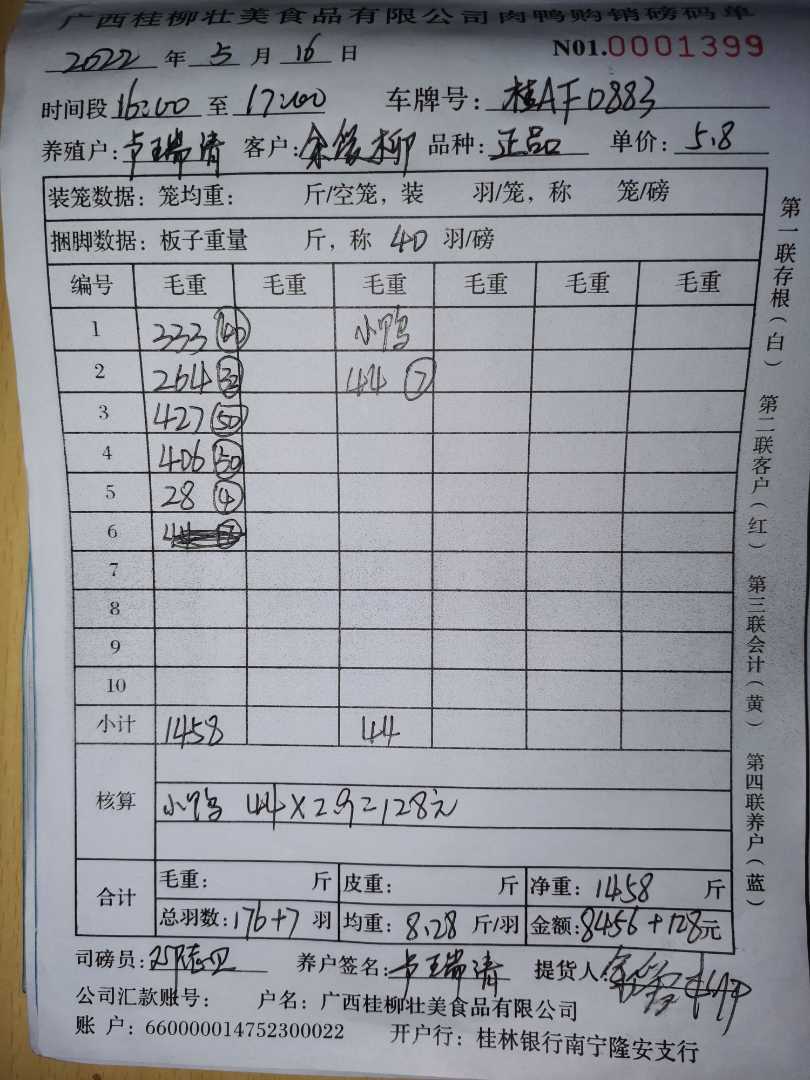 广西桂柳壮美食品有限公司肉鸭购销磅码单
2022 年 5 月 16 日 N01.0001399
时间段 16:00 至 17:00 车牌号: 桂AFD883
养殖户: 卢瑞清 客户: 柳 品种: 正品 单价: 5.8
装笼数据: 笼均重: 斤/空笼, 装 羽/笼, 称 笼/磅
捆脚数据: 板子重量 斤, 称 40 羽/磅
编号 毛重 毛重 毛重 毛重 毛重 毛重
1 233 40 小鸭
2 264 32 44 7
3 427 50
4 406 50
5 28 4
6
7
8
9
10
小计 1458 44
核算 小鸭 44×2.9=128元
合计 毛重: 斤 皮重: 斤 净重: 1458 斤
总羽数: 176+7 羽 均重: 8.28 斤/羽 金额: 8456+128元
司磅员: 养户签名: 卢瑞清 提货人:
公司汇款账号: 户名: 广西桂柳壮美食品有限公司
账 户: 660000014752300022 开户行: 桂林银行南宁隆安支行
第一联存根(白) 第二联客户(红) 第三联会计(黄) 第四联养户(蓝)